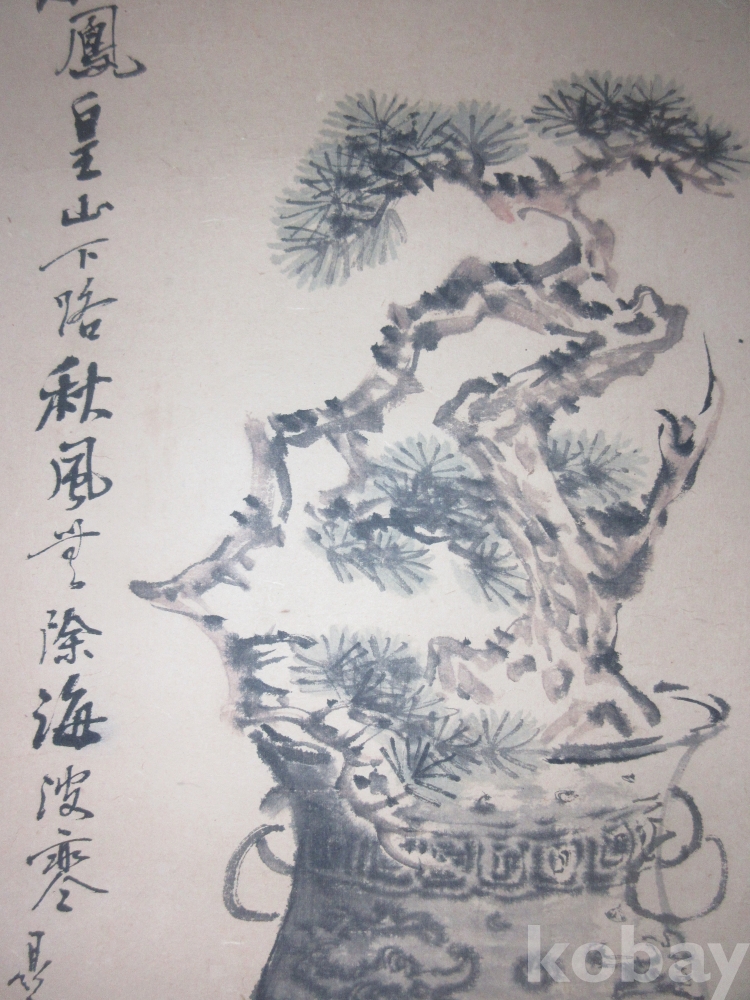 鳳皇山下路秋風無際海波寒
kobay